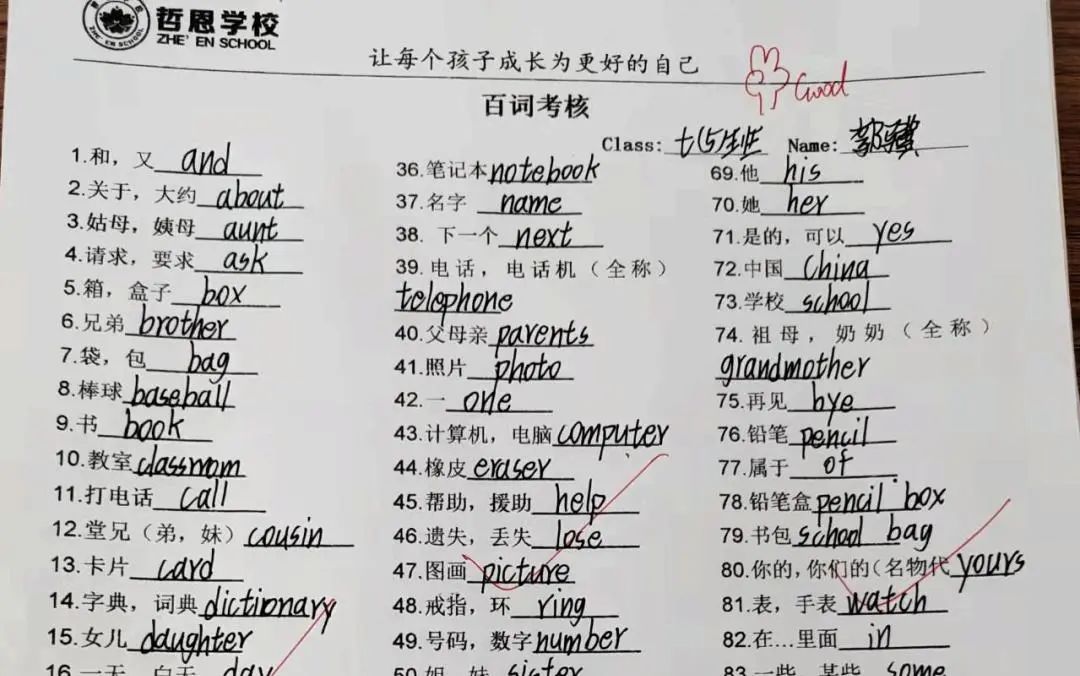 哲恩学校
ZHE' EN SCHOOL
让每个孩子成长为更好的自己
Good
百词考核
Class: 七(5)班 Name:
1.和，又 and
2.关于，大约 about
3.姑母，姨母 aunt
4.请求，要求 ask
5.箱，盒子 box
6.兄弟 brother
7.袋，包 bag
8.棒球 baseball
9.书 book
10.教室 classroom
11.打电话 call
12.堂兄（弟，妹）cousin
13.卡片 card
14.字典，词典 dictionary
15.女儿 daughter
16.一天，白天 day
36.笔记本 notebook
37.名字 name
38. 下一个 next
39.电话，电话机（全称）
telephone
40.父母亲 parents
41.照片 photo
42.一 one
43.计算机，电脑 computer
44.橡皮 eraser
45.帮助，援助 help
46.遗失，丢失 lose
47.图画 picture
48.戒指，环 ring
49.号码，数字 number
50.姐，妹 sister
69.他 his
70.她 her
71.是的，可以 yes
72.中国 China
73.学校 school
74.祖母，奶奶（全称）
grandmother
75.再见 bye
76.铅笔 pencil
77.属于 of
78.铅笔盒 pencil box
79.书包 school bag
80.你的，你们的（名物代 yours
81.表，手表 watch
82.在...里面 in
83.一些，某些 some